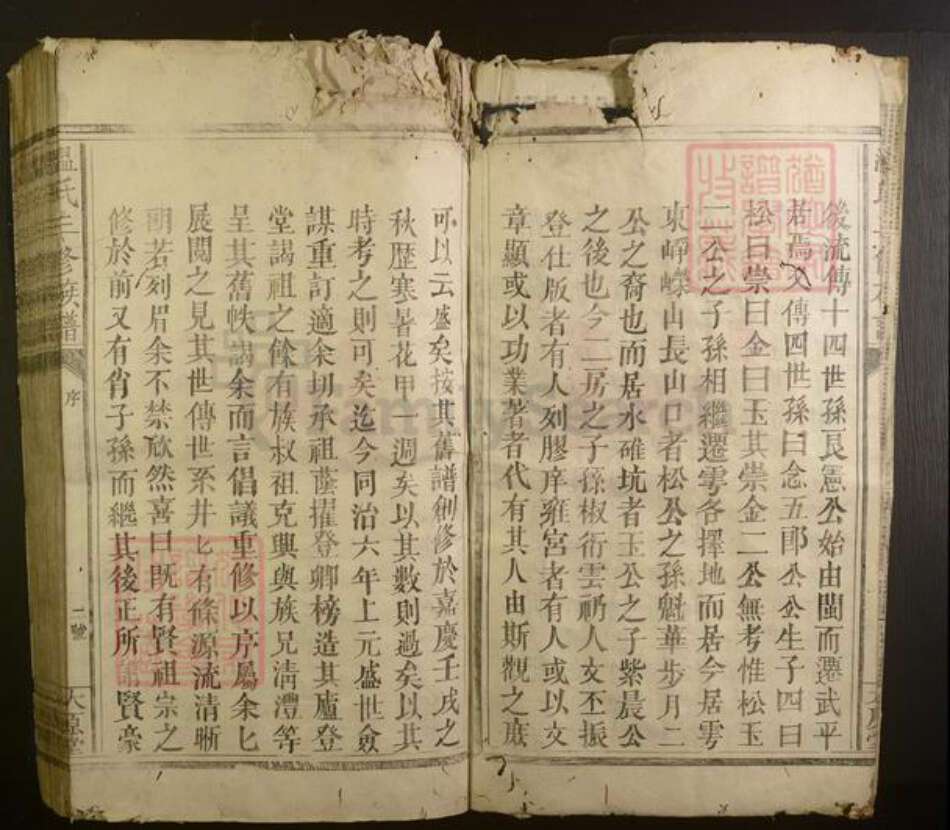 後流傳十四世孫艮憲公始由閩而遷武平
居焉又傳四世孫曰念五郎公公生子四曰
松曰崇曰金曰玉其崇金二公無考惟松玉
二公之子孫相繼遷雩各擇地而居今居雩
東崢嶸山長山口者松公之孫魁華步月二
公之裔也而居水碓坑者玉公之子紫晨公
之後也今二房之子孫椒衍雲礽人文丕振
登仕版者有人列膠庠雍宮者有人或以文
章顯或以功業著者代有其人由斯觀之庶
可以云盛矣按其舊譜創修於嘉慶壬戌之
秋歷寒暑花甲一週矣以其數則過矣以其
時考之則可矣迄今同治六年上元盛世僉
謀重訂適余叨承祖蔭擢登卿榜造其廬登
堂謁祖之餘有族叔祖克興與族兄清澧等
呈其舊帙謁余而言倡議重修以序屬余匕
展閱之見其世傳世系井匕有條源流清晰
朗若列眉余不禁欣然喜曰既有賢祖宗之
修於前又有肖子孫而繼其後正所謂賢豪
溫氏三修族譜
序
二號
太原堂
FamilySearch